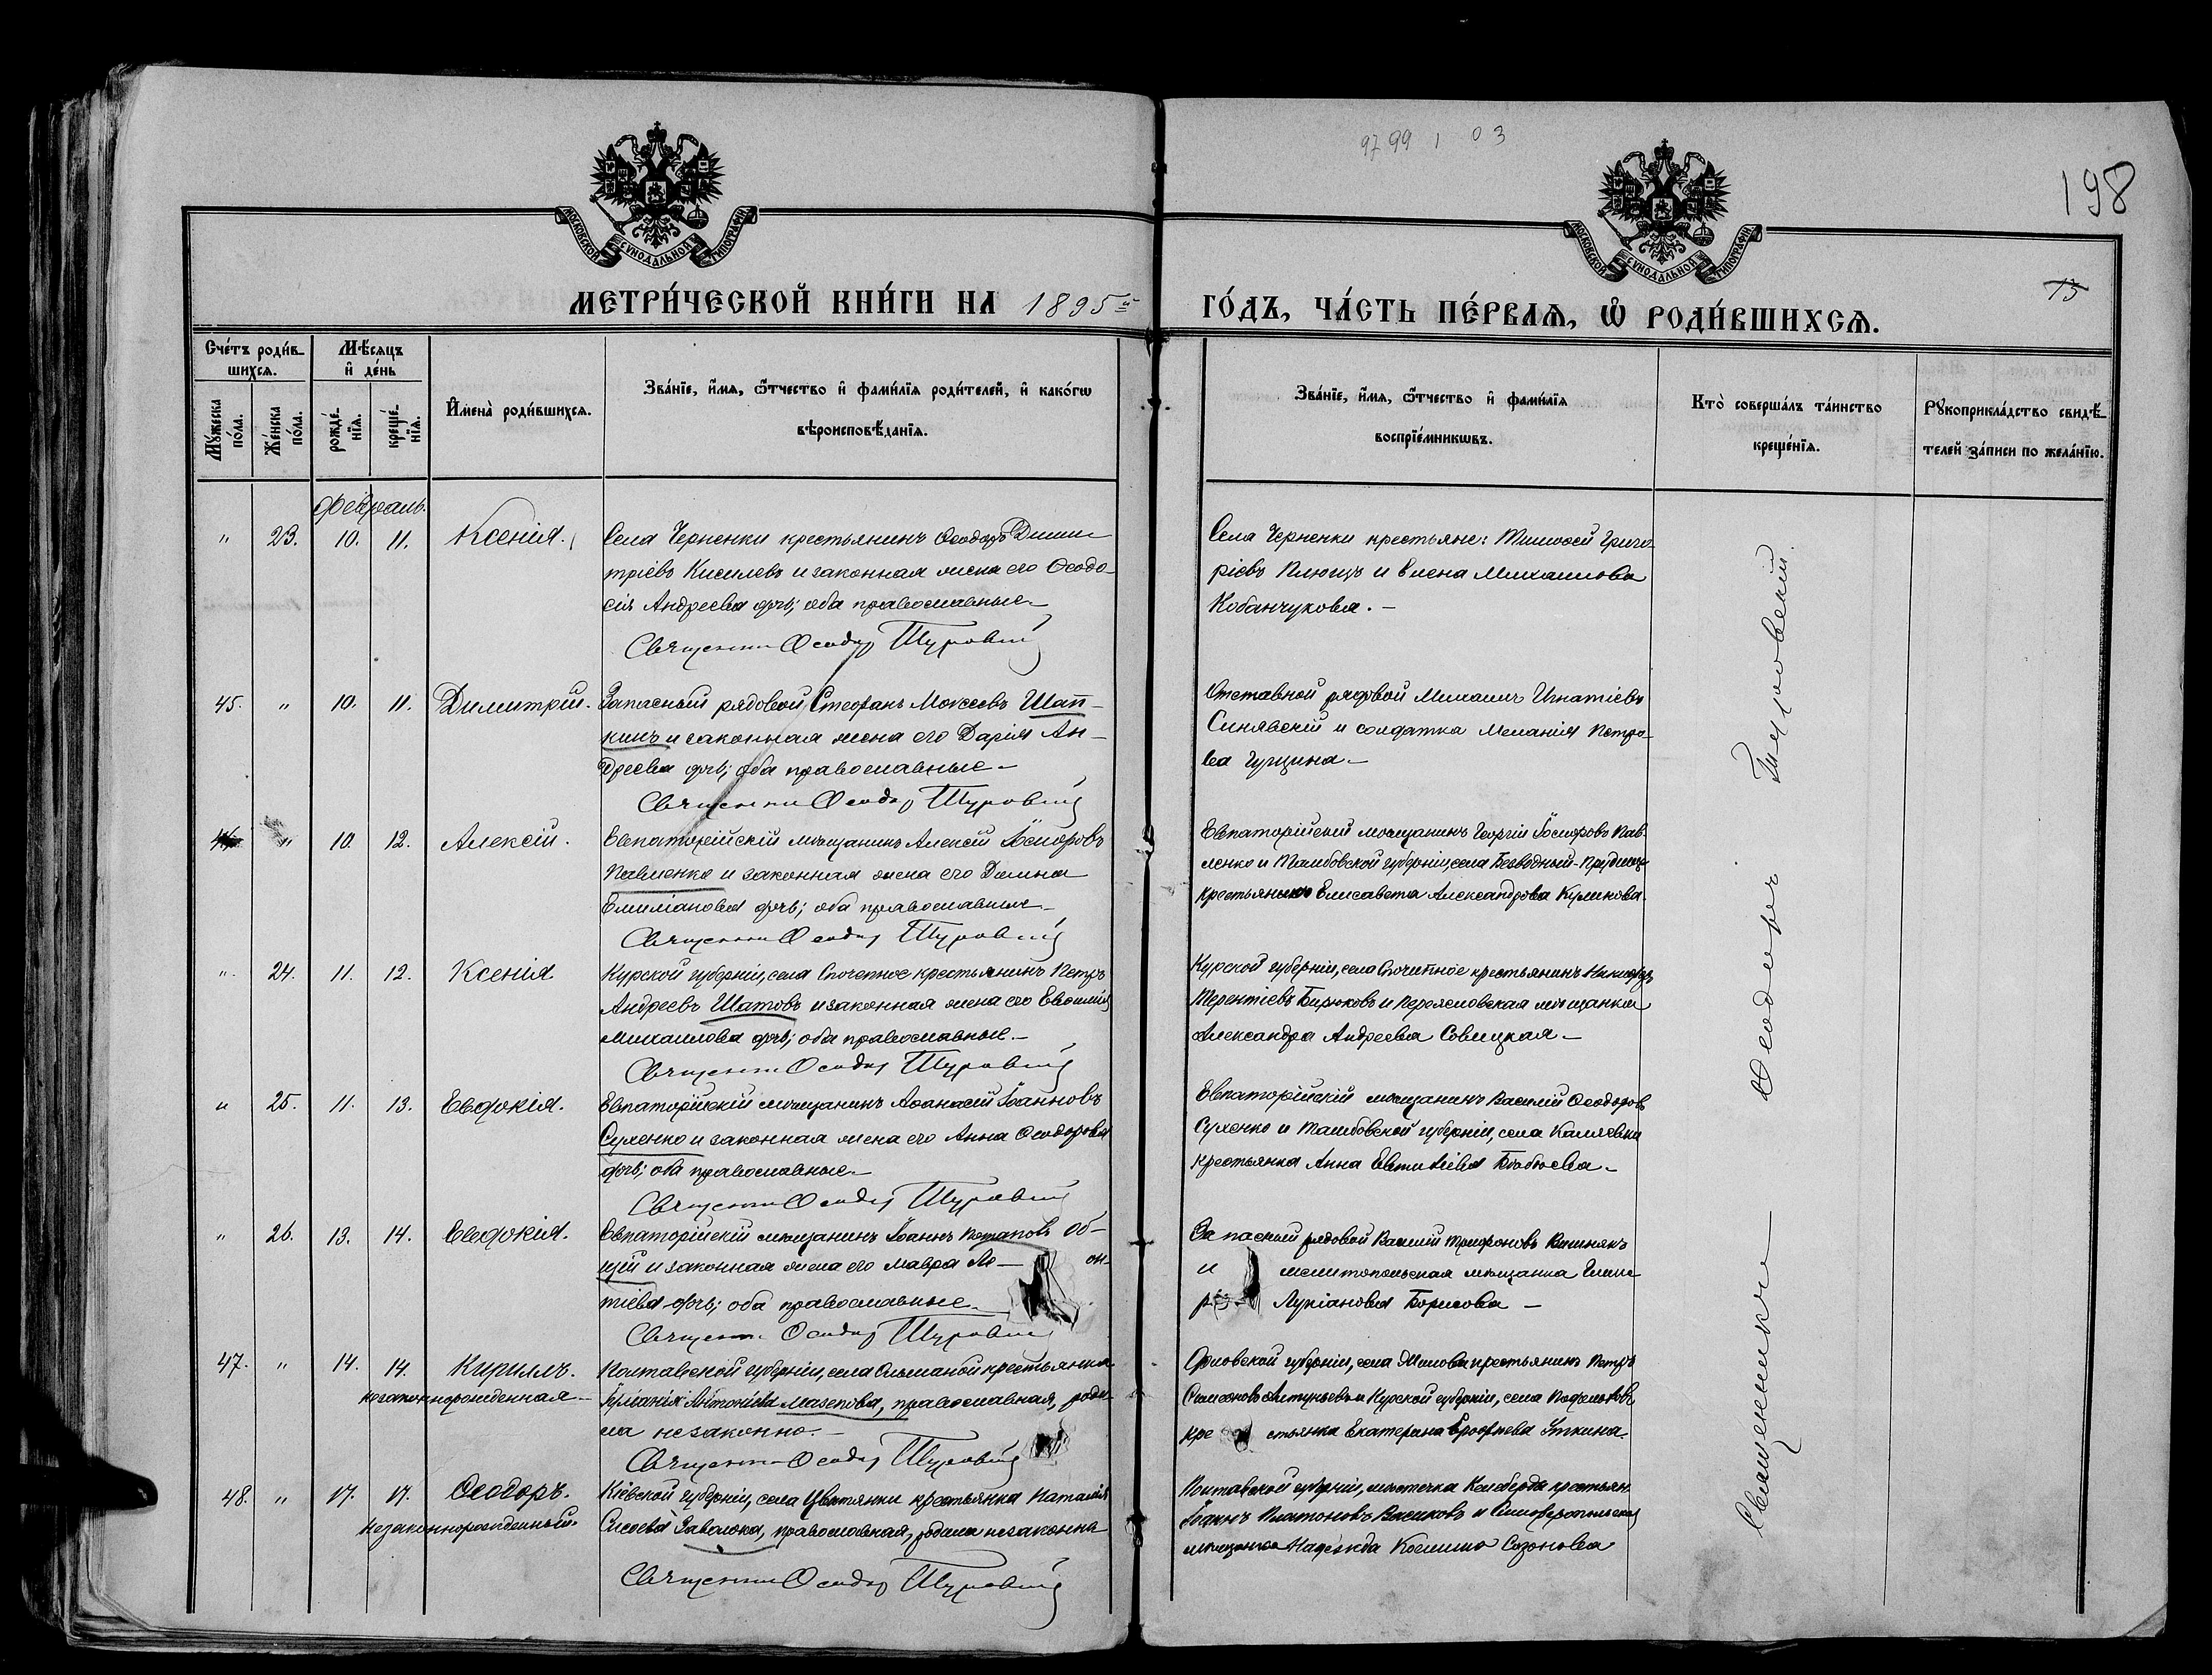 97 99 1 03
198
13
МОСКОВСКОЙ СУНОДАЛЬНОЙ ТИПОГРАФІИ
МОСКОВСКОЙ СУНОДАЛЬНОЙ ТИПОГРАФІИ
МЕТРИ́ЧЕСКОЙ КНИ́ГИ НА 1895й ГО́ДЪ, ЧА́СТЬ ПЕ́РВАѦ, Ѡ РОДИ́ВШИХСѦ.
Сче́тъ роди́в-
шихсѧ.
Мꙋжеска по́ла.
Же́нска по́ла.
Мѣ́сѧцъ
и҆ де́нь
рожде́-
нїѧ.
креще́-
нїѧ.
И҆мена̀ роди́вшихсѧ.
Зва́нїе, и҆́мѧ, ѻ҆́тчество и҆ фами́лїѧ роди́телей, и҆ како́гѡ
вѣроисповѣ́данїѧ.
Зва́нїе, и҆́мѧ, ѻ҆́тчество и҆ фами́лїѧ
воспрїе́мникѡвъ.
Кто̀ соверша́лъ та́инство
креще́нїѧ.
Рꙋкоприкла́дство свидѣ́-
телей за́писи по жела́нїю.
Февраль.
" 23. 10. 11. Ксенія.
Села Черненки крестьянинъ Ѳеодоръ Дими-
тріевъ Киселевъ и законная жена его Ѳеодо-
сія Андреева дочь; оба православные.
Священникъ Ѳеодоръ Туровскій
Села Черненки крестьяне: Тимоѳей Григо-
ріевъ Плющъ и Елена Михаилова
Кобанчукова. -
45. " 10. 11. Димитрій.
Запасный рядовой Стефанъ Моѵсеевъ Шап-
кинъ и законная жена его Дарія Ан-
дреева дочь; оба православные.
Священникъ Ѳеодоръ Туровскій
Отставной рядовой Михаилъ Игнатіевъ
Синявскій и солдатка Меланія Петро-
ва Гущина.
46 " 10. 12. Алексій.
Евпаторійскій мѣщанинъ Алексій Іосифовъ
Павленко и законная жена его
Емиліанова дочь; оба православные.
Священникъ Ѳеодоръ Туровскій
Евпаторійскій мѣщанинъ Георгій Іосифовъ Пав-
ленко и Тамбовской губерніи, села
крестьянка Елисавета Александрова Куликова.
" 24. 11. 12. Ксенія
Курской губерніи, села крестьянинъ Петръ
Андреевъ Шатовъ и законная жена его Евѳимія
Михаилова дочь; оба православные.
Священникъ Ѳеодоръ Туровскій
Курской губерніи, села крестьянинъ Никифоръ
Терентіевъ Бирюковъ и Переяславская мѣщанка
Александра Андреева Совицкая.
" 25. 11. 13. Евдокія.
Евпаторійскій мѣщанинъ Аѳанасій Іоанновъ
Сухенко и законная жена его Анна Ѳеодорова
дочь; оба православные.
Священникъ Ѳеодоръ Туровскій
Евпаторійскій мѣщанинъ Василій Ѳеодоровъ
Сухенко и Тамбовской губерніи, села
крестьянка Анна
" 26. 13. 14. Евдокія.
Евпаторійскій мѣщанинъ Іоаннъ Потаповъ Об-
щій и законная жена его Мавра Ле- он-
тіева дочь; оба православные.
Священникъ Ѳеодоръ Туровскій
Запасный рядовой Василій Трифоновъ
и мелитопольская мѣщанка
Лукіанова Борисова -
47. " 14. 14. Кириллъ.
незаконнорожденная
Полтавской губерніи, села крестьянка
Іуліанія Антоніева Мазепова, православная, роди-
ла незаконно.
Священникъ Ѳеодоръ Туровскій
Орловской губерніи, села крестьянинъ Петръ
и Курской губерніи, села
кре стьянка Екатерина Ероѳеева Уткина.
48. " 17. 17. Ѳеодоръ.
незаконнорожденный.
Кіевской губерніи, села Цвѣтянки крестьянка Наталія
Сисоева православная, родила незаконно
Священникъ Ѳеодоръ Туровскій
Полтавской губерніи, мѣстечка Келеберда крестьян.
Іоаннъ Платоновъ и Симферопольская
мѣщанка Надежда Сазонова
Священникъ Ѳеодоръ Туровскій.